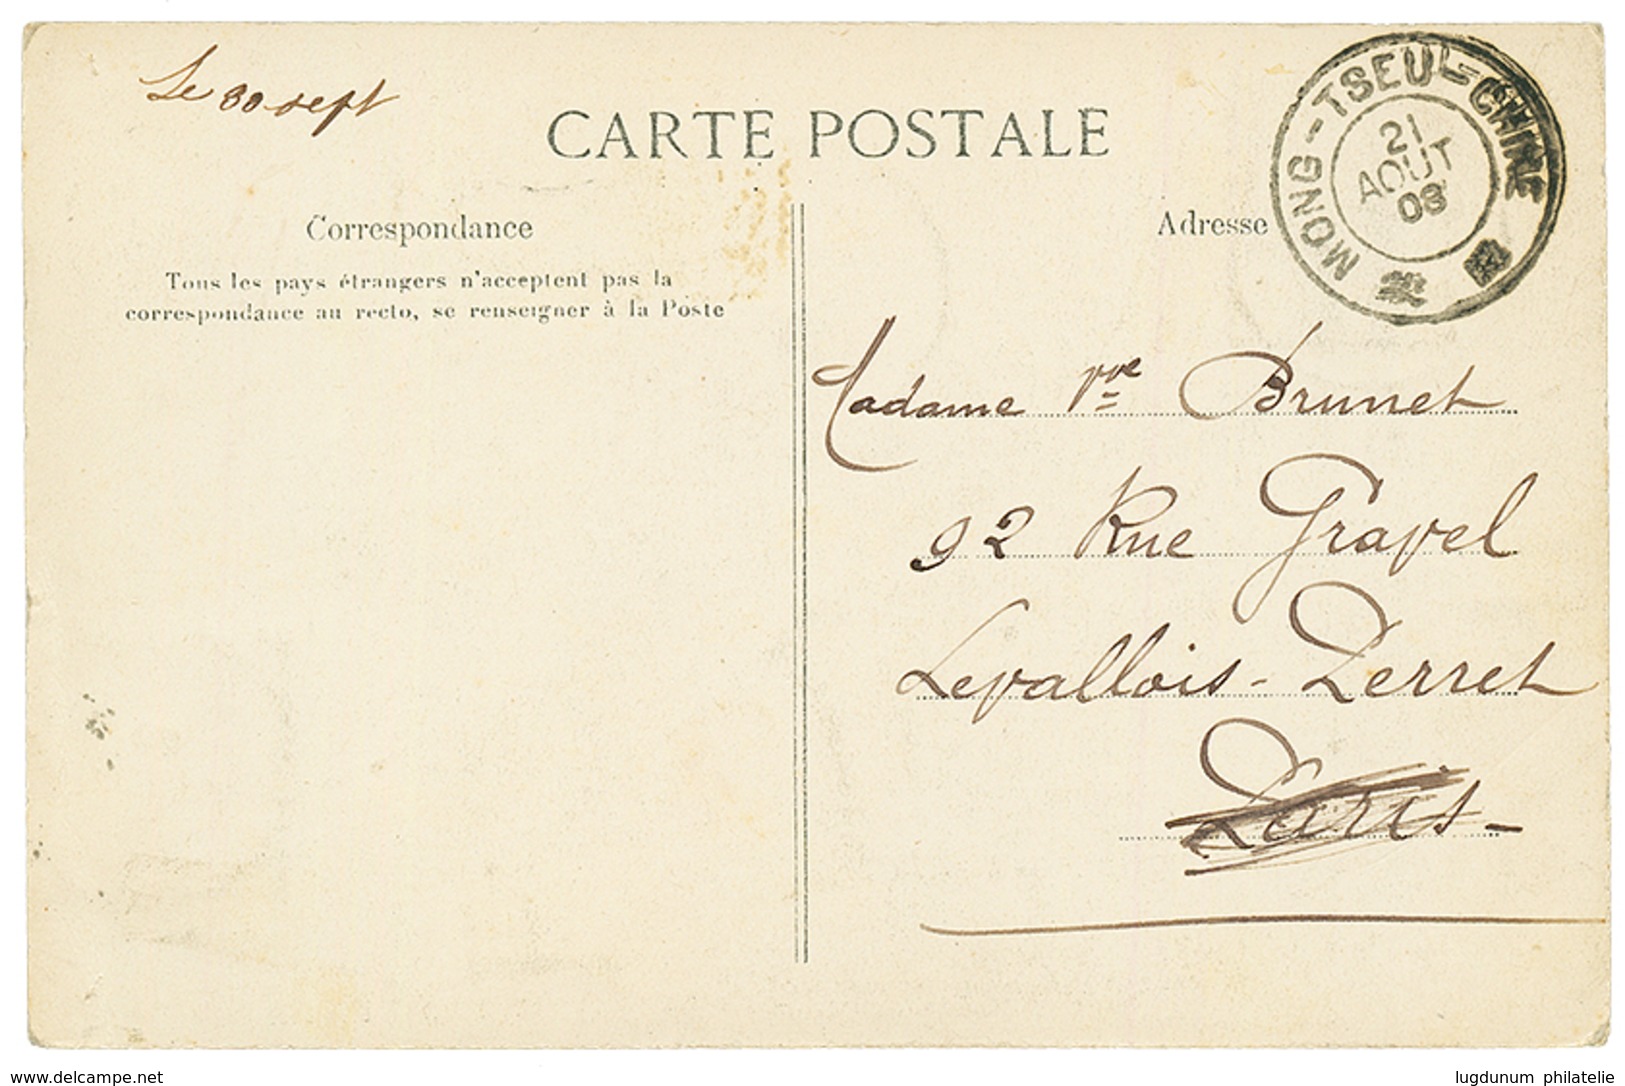 Le 30 sept
CARTE POSTALE
MONG-TSEU-CHINE
21
AOUT
08
Correspondance
Adresse
Tous les pays étrangers n'acceptent pas la
correspondance au recto, se renseigner à la Poste
Madame Vve Brunet
92 Rue Gravel
Levallois-Perret
Paris
www.delcampe.net
lugdunum philatelie